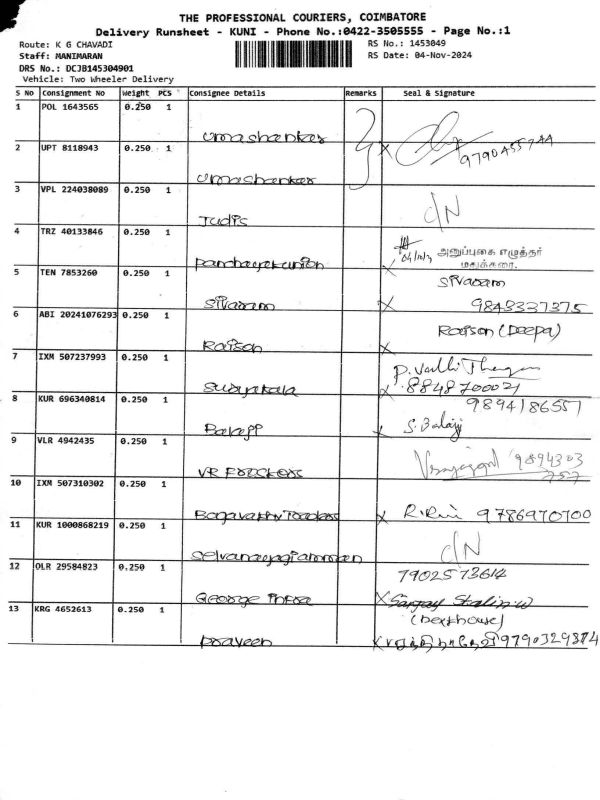 THE PROFESSIONAL COURIERS, COIMBATORE
Delivery Runsheet - KUNI - Phone No.:0422-3505555 - Page No.:1
Route: K G CHAVADI RS No.: 1453049
Staff: MANIMARAN RS Date: 04-Nov-2024
DRS No.: DCJB145304901
Vehicle: Two Wheeler Delivery
S No Consignment No Weight PCS Consignee Details Remarks Seal & Signature
1 POL 1643565 0.250 1
umashankar
2 UPT 8118943 0.250 1 9790455744
umashankar
3 VPL 224038089 0.250 1
Judis C/N
4 TRZ 40133846 0.250 1 அனுப்புகை எழுத்தர்
Panchayat union மதுக்கரை.
5 TEN 7853260 0.250 1 Sivaram
Sivaram 9843337375
6 ABI 20241076293 0.250 1 Raison (Deepa)
Raison
7 IXM 507237993 0.250 1
Suryakala 8848700021
8 KUR 696340814 0.250 1 9894186551
Balaji S. Balaji
9 VLR 4942435 0.250 1 9894303
757
10 IXM 507310302 0.250 1
Bagavathi Traders 9786970700
11 KUR 1000868219 0.250 1
Selvanayagiamman C/N
12 OLR 29584823 0.250 1 7902573614
George Infra Sanjay Stalin
13 KRG 4652613 0.250 1
Praveen 9790329874